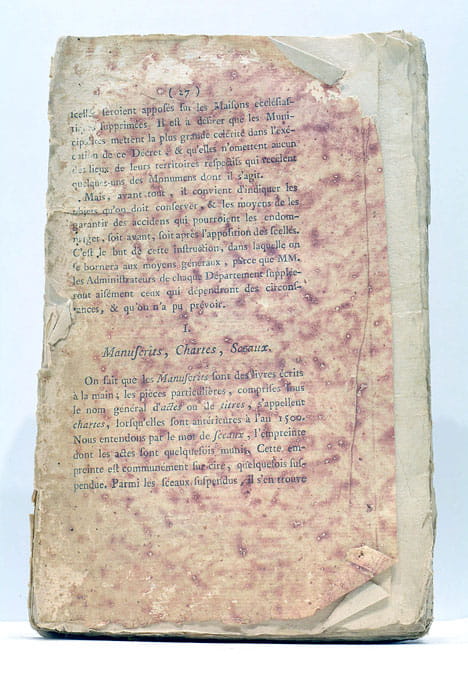 ( 27 )
icelles seroient apposés sur les Maisons ecclésias-
tiques supprimées. Il est à desirer que les Muni-
cipalités mettent la plus grande célérité dans l'exé-
cution de ce Décret, & qu'elles n'omettent aucun
des lieux de leurs territoires respectifs qui recèlent
quelques-uns des Monumens dont il s'agit.
Mais, avant tout, il convient d'indiquer les
objets qu'on doit conserver, & les moyens de les
garantir des accidens qui pourroient les endom-
mager, soit avant, soit après l'apposition des scellés.
C'est le but de cette instruction, dans laquelle on
se bornera aux moyens généraux, parce que MM.
les Administrateurs de chaque Département supplée-
ront aisément ceux qui dépendront des circons-
tances, & qu'on n'a pu prévoir.
I.
Manuscrits, Chartes, Sceaux.
On sait que les Manuscrits sont des livres écrits
à la main; les pièces particulières, comprises sous
le nom général d'actes ou de titres, s'appellent
chartes, lorsqu'elles sont antérieures à l'an 1500.
Nous entendons par le mot de sceaux, l'empreinte
dont les actes sont quelquefois munis. Cette em-
preinte est communément sur cire, quelquefois sus-
pendue. Parmi les sceaux suspendus, il s'en trouve